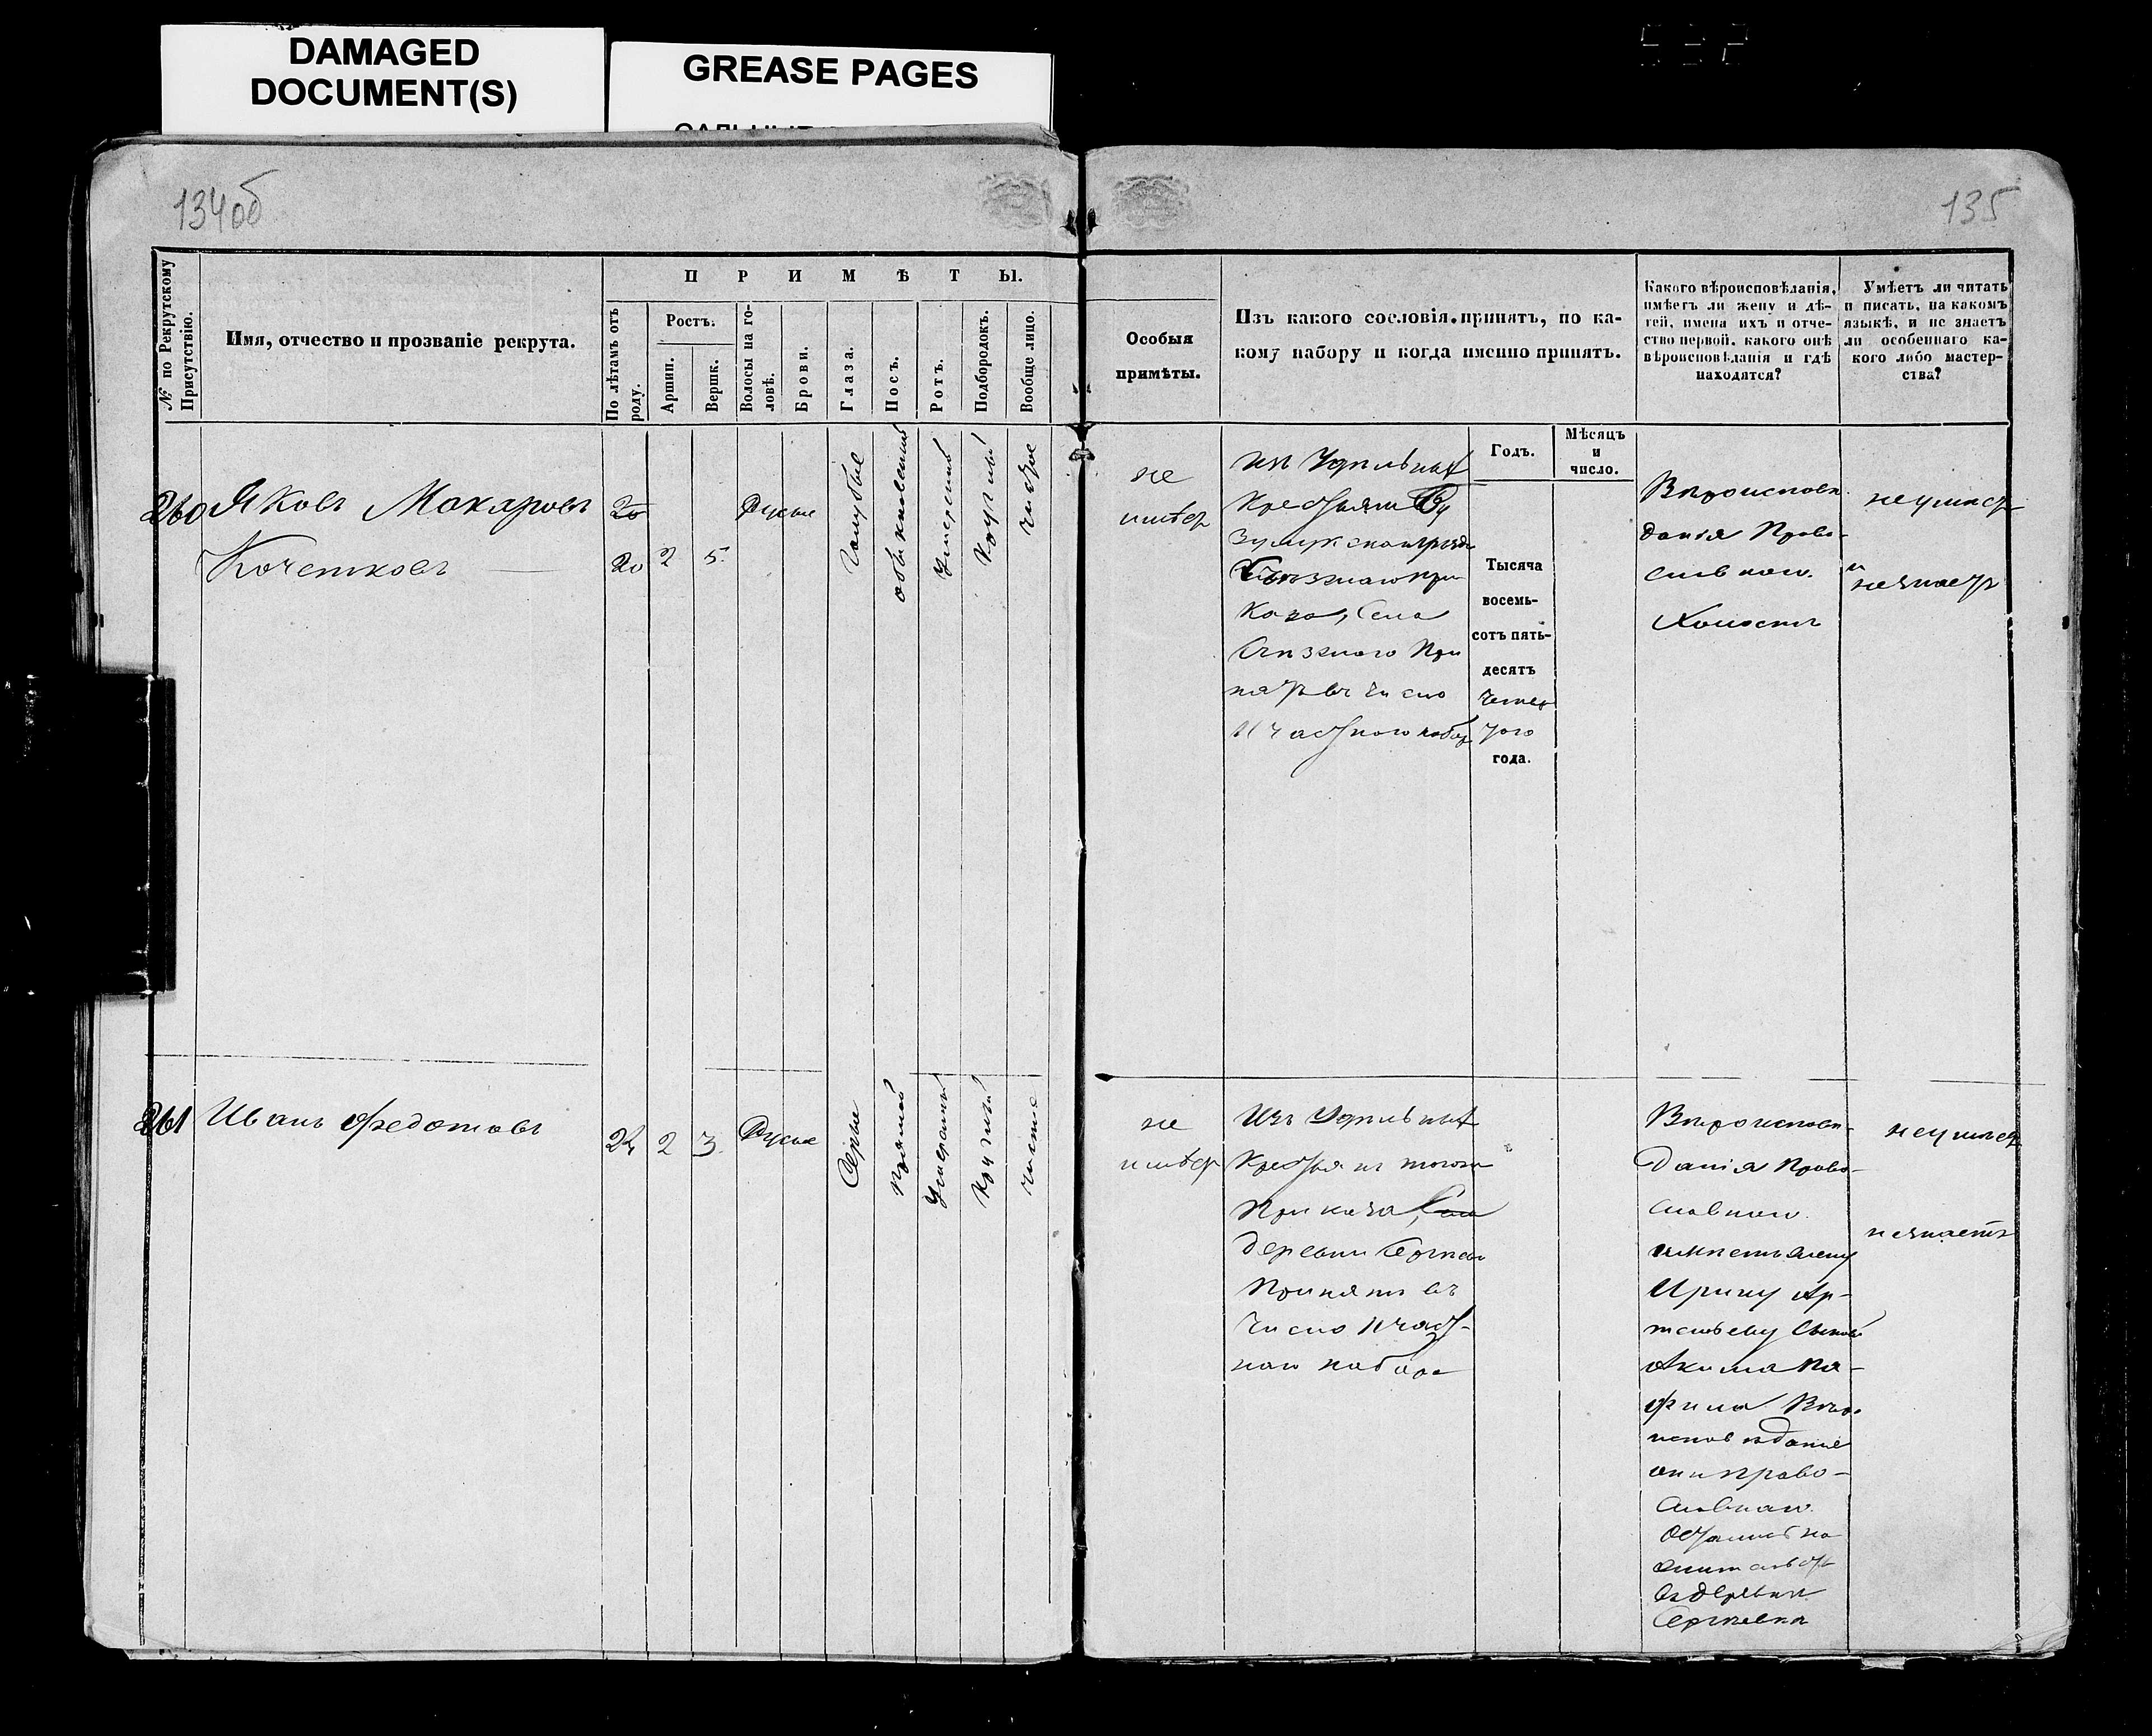 DAMAGED
DOCUMENT(S)
GREASE PAGES
134об
135
№ по Рекрутскому
Присутствію.
Имя, отчество и прозваніе рекрута.
ПРИМѢТЫ.
По лѣтамъ отъ
роду.
Ростъ.
Аршин.
Вершк.
Волосы на го-
ловѣ.
Брови.
Глаза.
Носъ.
Ротъ.
Подбородокъ.
Вообще лицо.
Особыя
примѣты.
Изъ какого сословія принятъ, по ка-
кому набору и когда именно принятъ.
Какого вѣроисповѣданія,
имѣетъ ли жену и дѣ-
тей, имена ихъ и отче-
ство первой, какого онѣ
вѣроисповѣданія и гдѣ
находятся?
Умѣетъ ли читать
и писать, на какомъ
языкѣ, и не знаетъ
ли особеннаго ка-
кого либо мастер-
ства?
260 Яковъ Макаровъ
Кочетковъ
20
20
2
5.
Русые
Голубые
обыкновенный
Умеренный
Круглый
чистое
не
имѣет
изъ Удельных
Крестьян
Казо, Села
принятъ въ число
Годъ.
Мѣсяцъ
и
число.
Тысяча
восемь-
сотъ пять-
десятъ
четвер
того
года.
Вероиспове
данія Право-
славнаго.
Холостъ
неумеет
и
незнает
261 Иванъ Федотовъ
2
3.
Русые
Серые
Прямой
Умеренный
Круглый
чистое
не
имѣет
Изъ Удельных
Крестьянъ того же
Приказа, Села
деревни Сергеев
Принятъ въ
Число Част-
наго набора
Вероиспове-
данія Право-
славнаго
имеетъ жену
Ирину Ар-
темьеву Сыновей
Акима Па-
фила Веро-
исповеданіе
они право-
славнаго
Остались на
жительст
въ деревни
Сергеевка
неумеет
незнаетъ